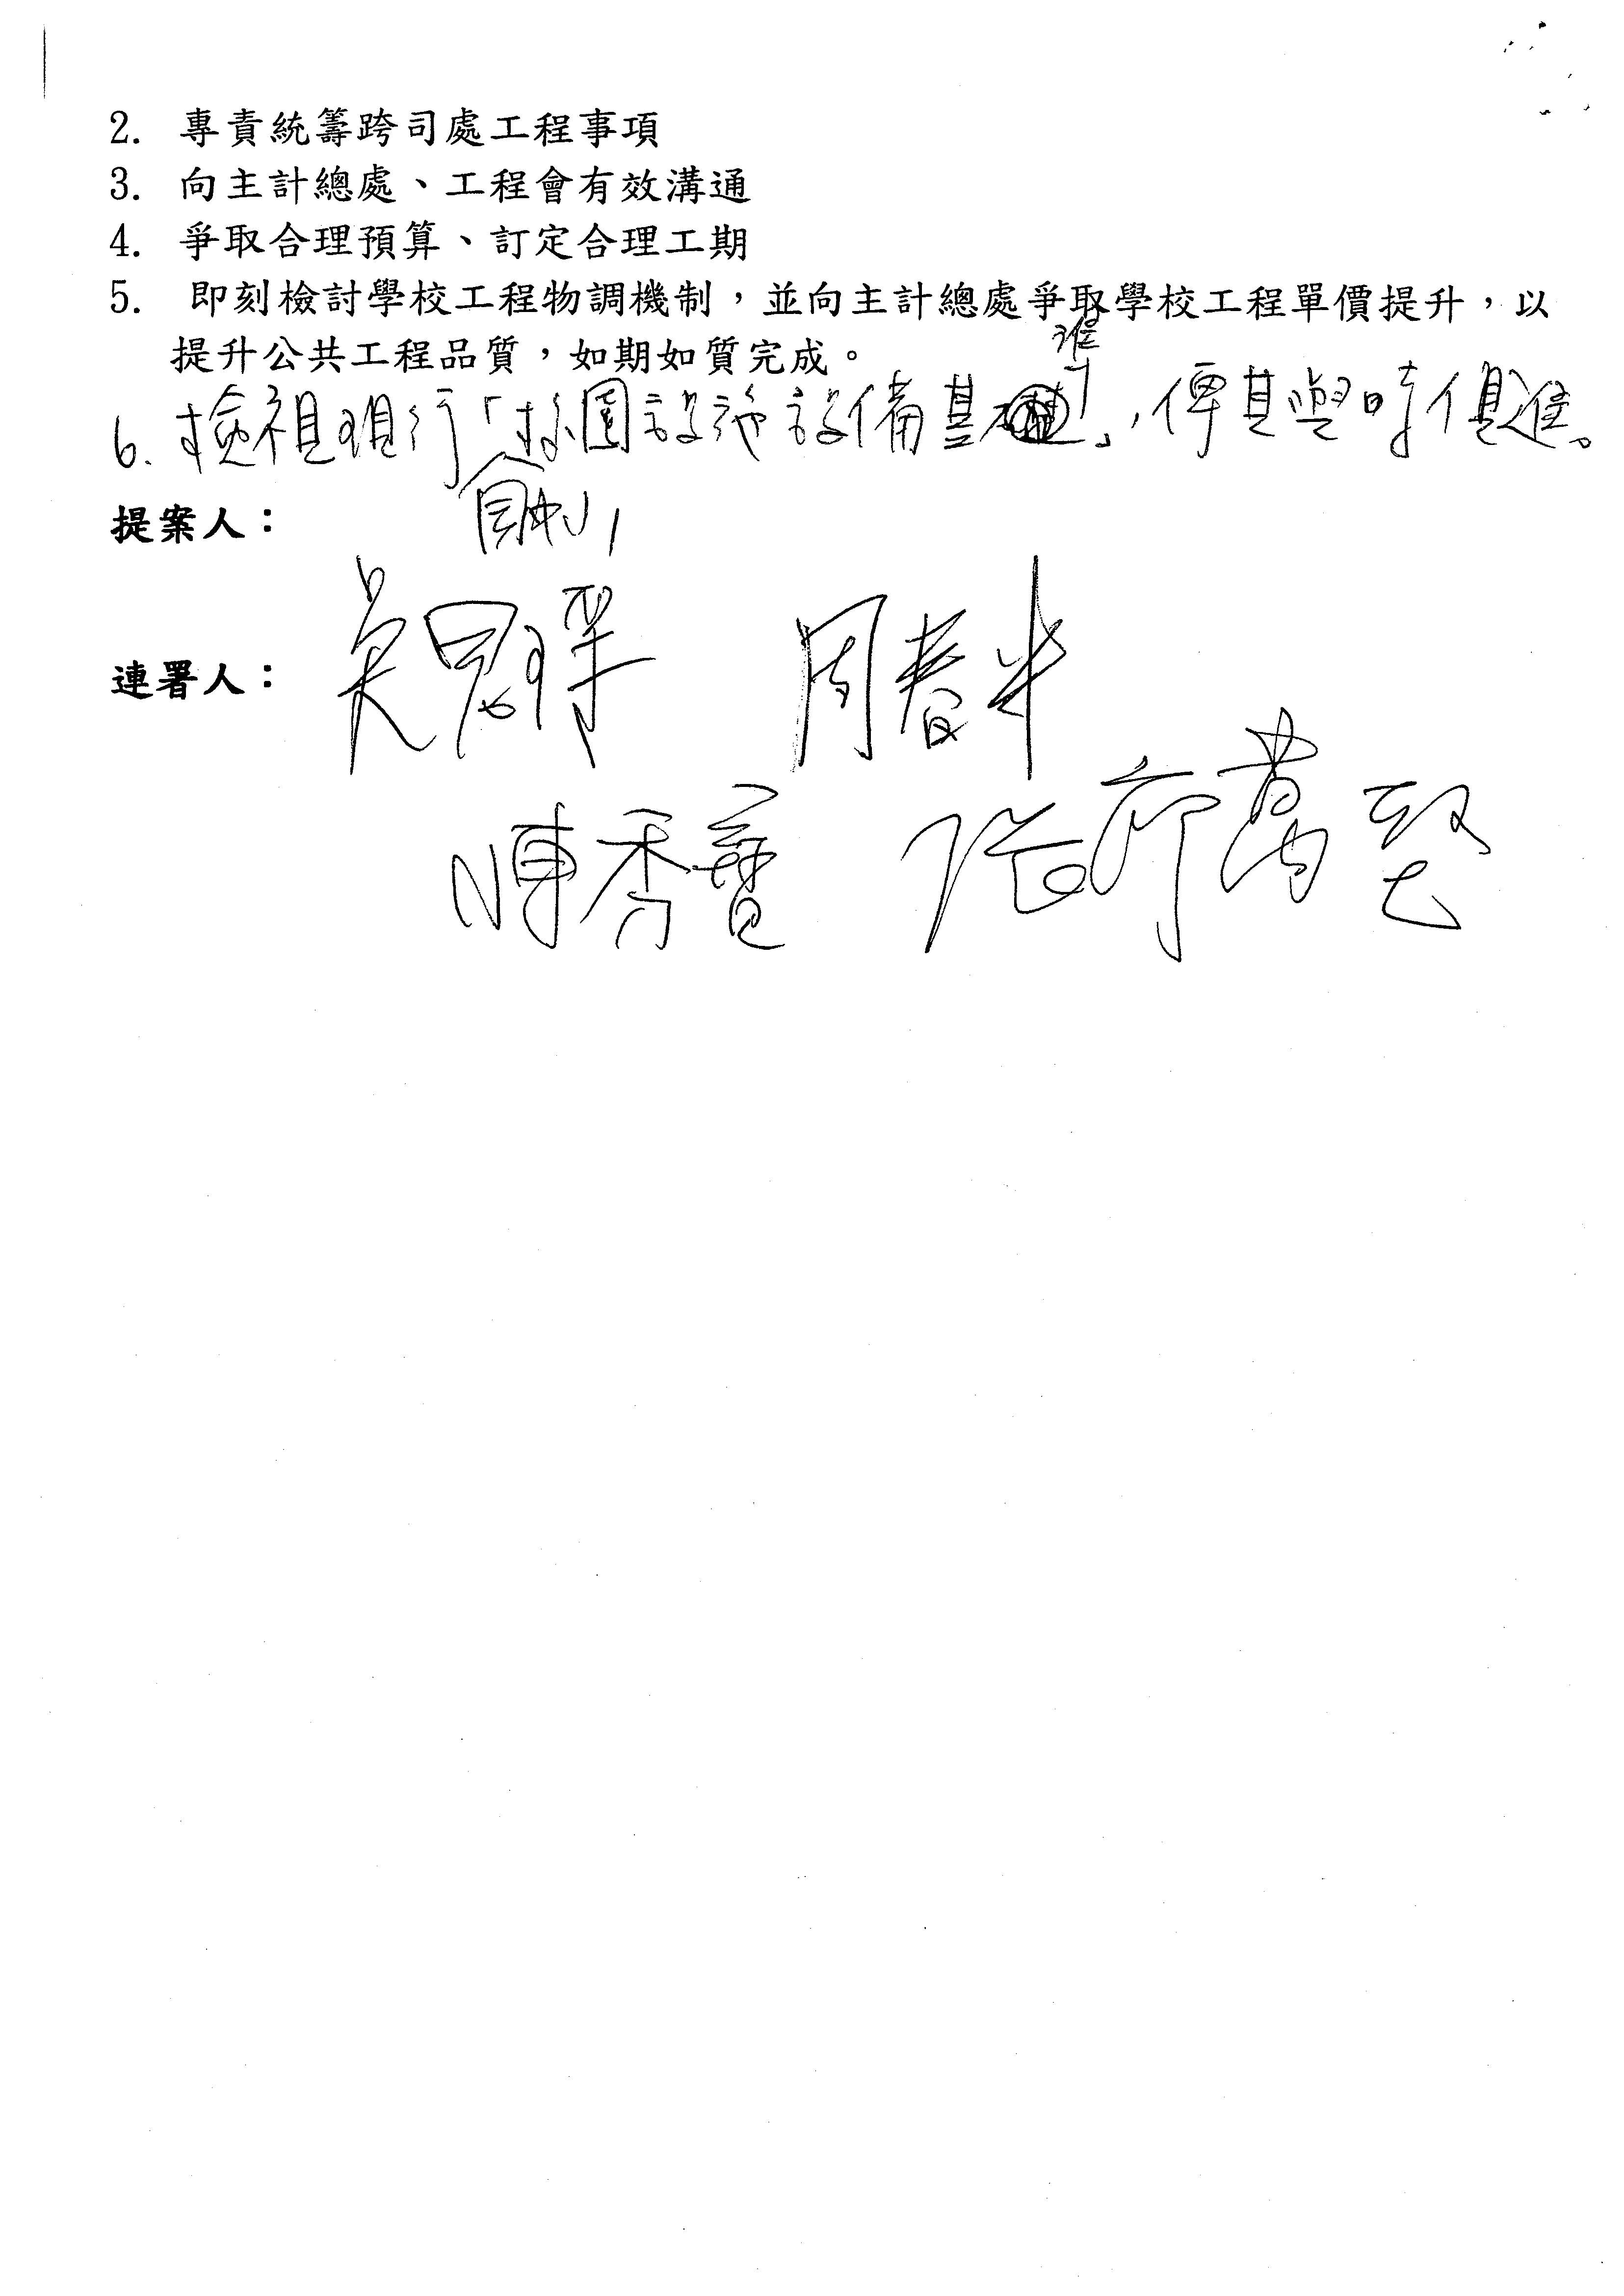 2. 專責統籌跨司處工程事項
3. 向主計總處、工程會有效溝通
4. 爭取合理預算、訂定合理工期
5. 即刻檢討學校工程物調機制，並向主計總處爭取學校工程單價提升，以
提升公共工程品質，如期如質完成。
準
6. 檢視現行「校園設施設備基」，俾其與時俱進。
提案人：
連署人：
陳秀寳 張廖萬堅